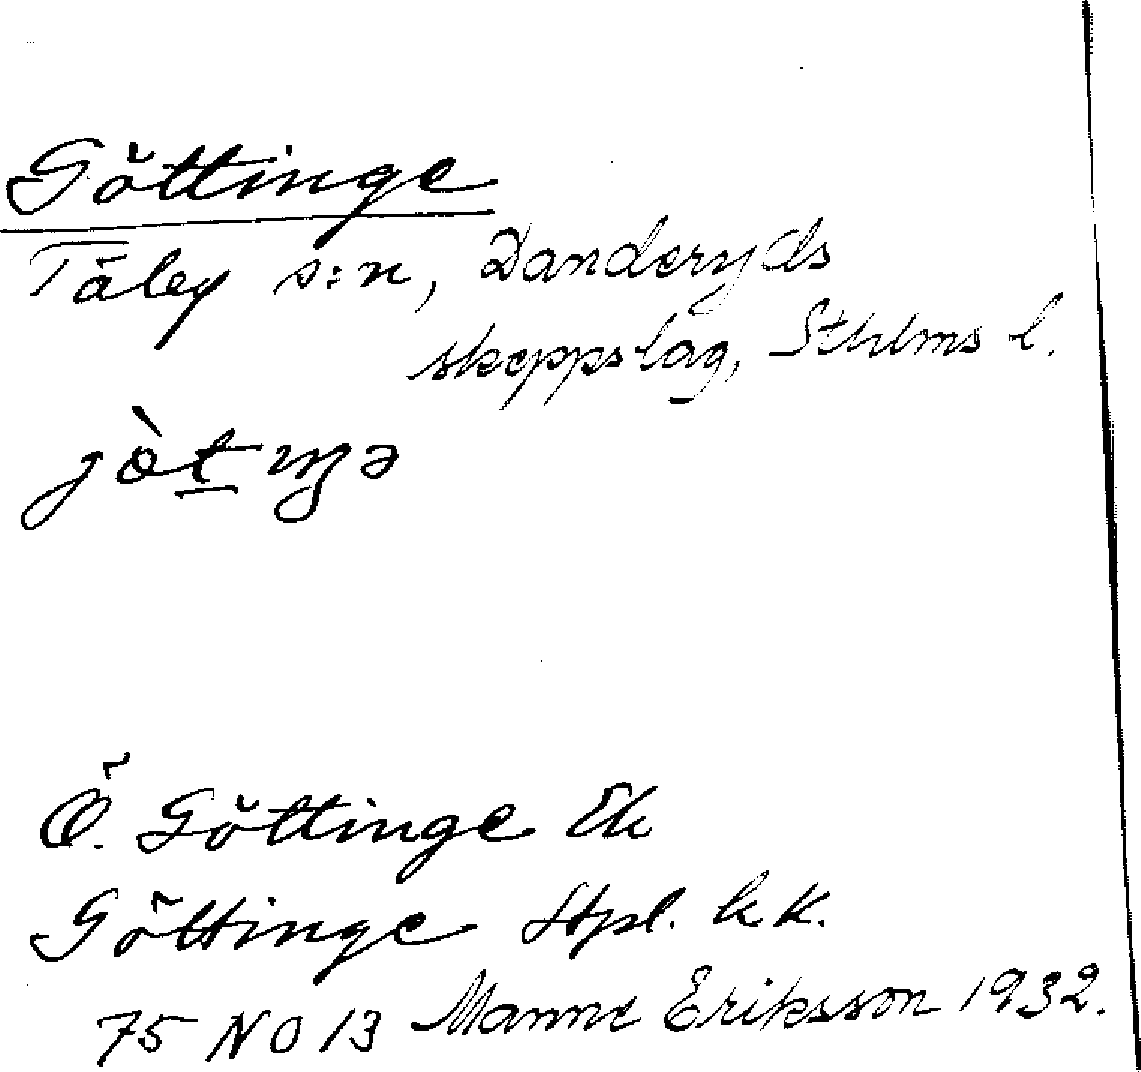 Göttinge
Täby s:n, Danderyds
skeppslag, Sthlms l.
jö̀t̲ıŋə
Ö. Göttinge Ek
Göttinge Stpl. kk.
75 NO 13 Manne Eriksson 1932.